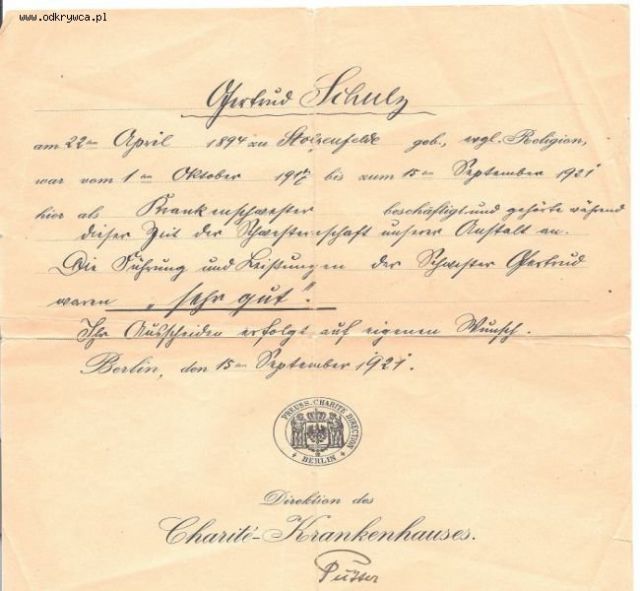 www.odkrywca.pl
Gertrud Schulz
am 22ten April 1894 zu Stolzenfelde geb., evgl. Religion,
war vom 1ten Oktober 1917 bis zum 15ten September 1921
hier als Krankenschwester beschäftigt und gehörte während
dieser Zeit der Schwesternschaft unserer Anstalt an.
Die Führung und Leistungen der Schwester Gertrud
waren „sehr gut“.
Ihr Ausscheiden erfolgt auf eigenen Wunsch.
Berlin, den 15ten September 1921.
PREUSS. CHARITÉ DIRECTION
BERLIN
Direktion des
Charité-Krankenhauses.
Pütter